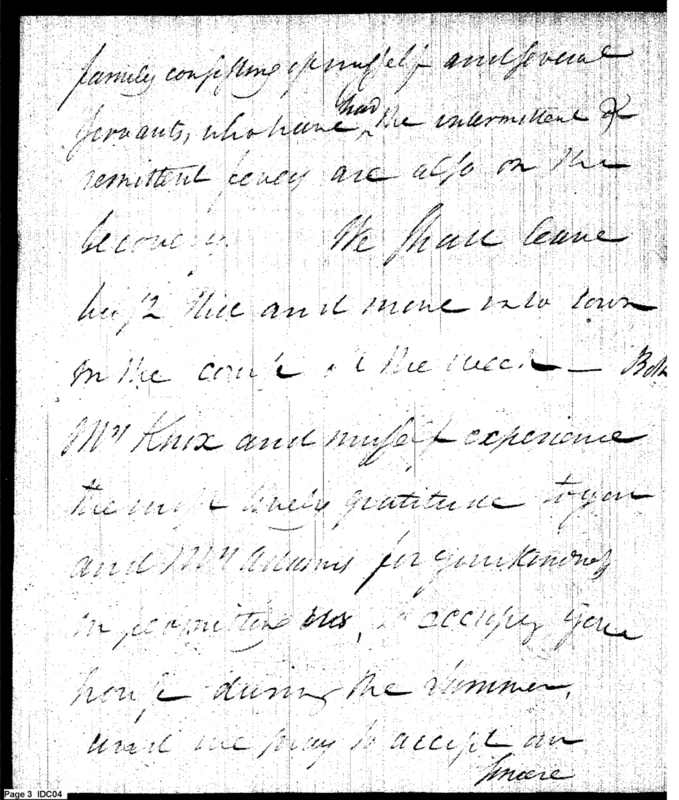 family consisting of myself and several
servants, who have had the intermittent &
remittent fever are also on the
recovery. We shall leave
hill and move into town
in the course of the week — Both
Mrs Knox and myself experience
the most lively gratitude to you
and Mrs Adams for your kindness
in permitting us, to occupy your
house during the summer,
and we pray to accept our
sincere
Page 3 IDC04